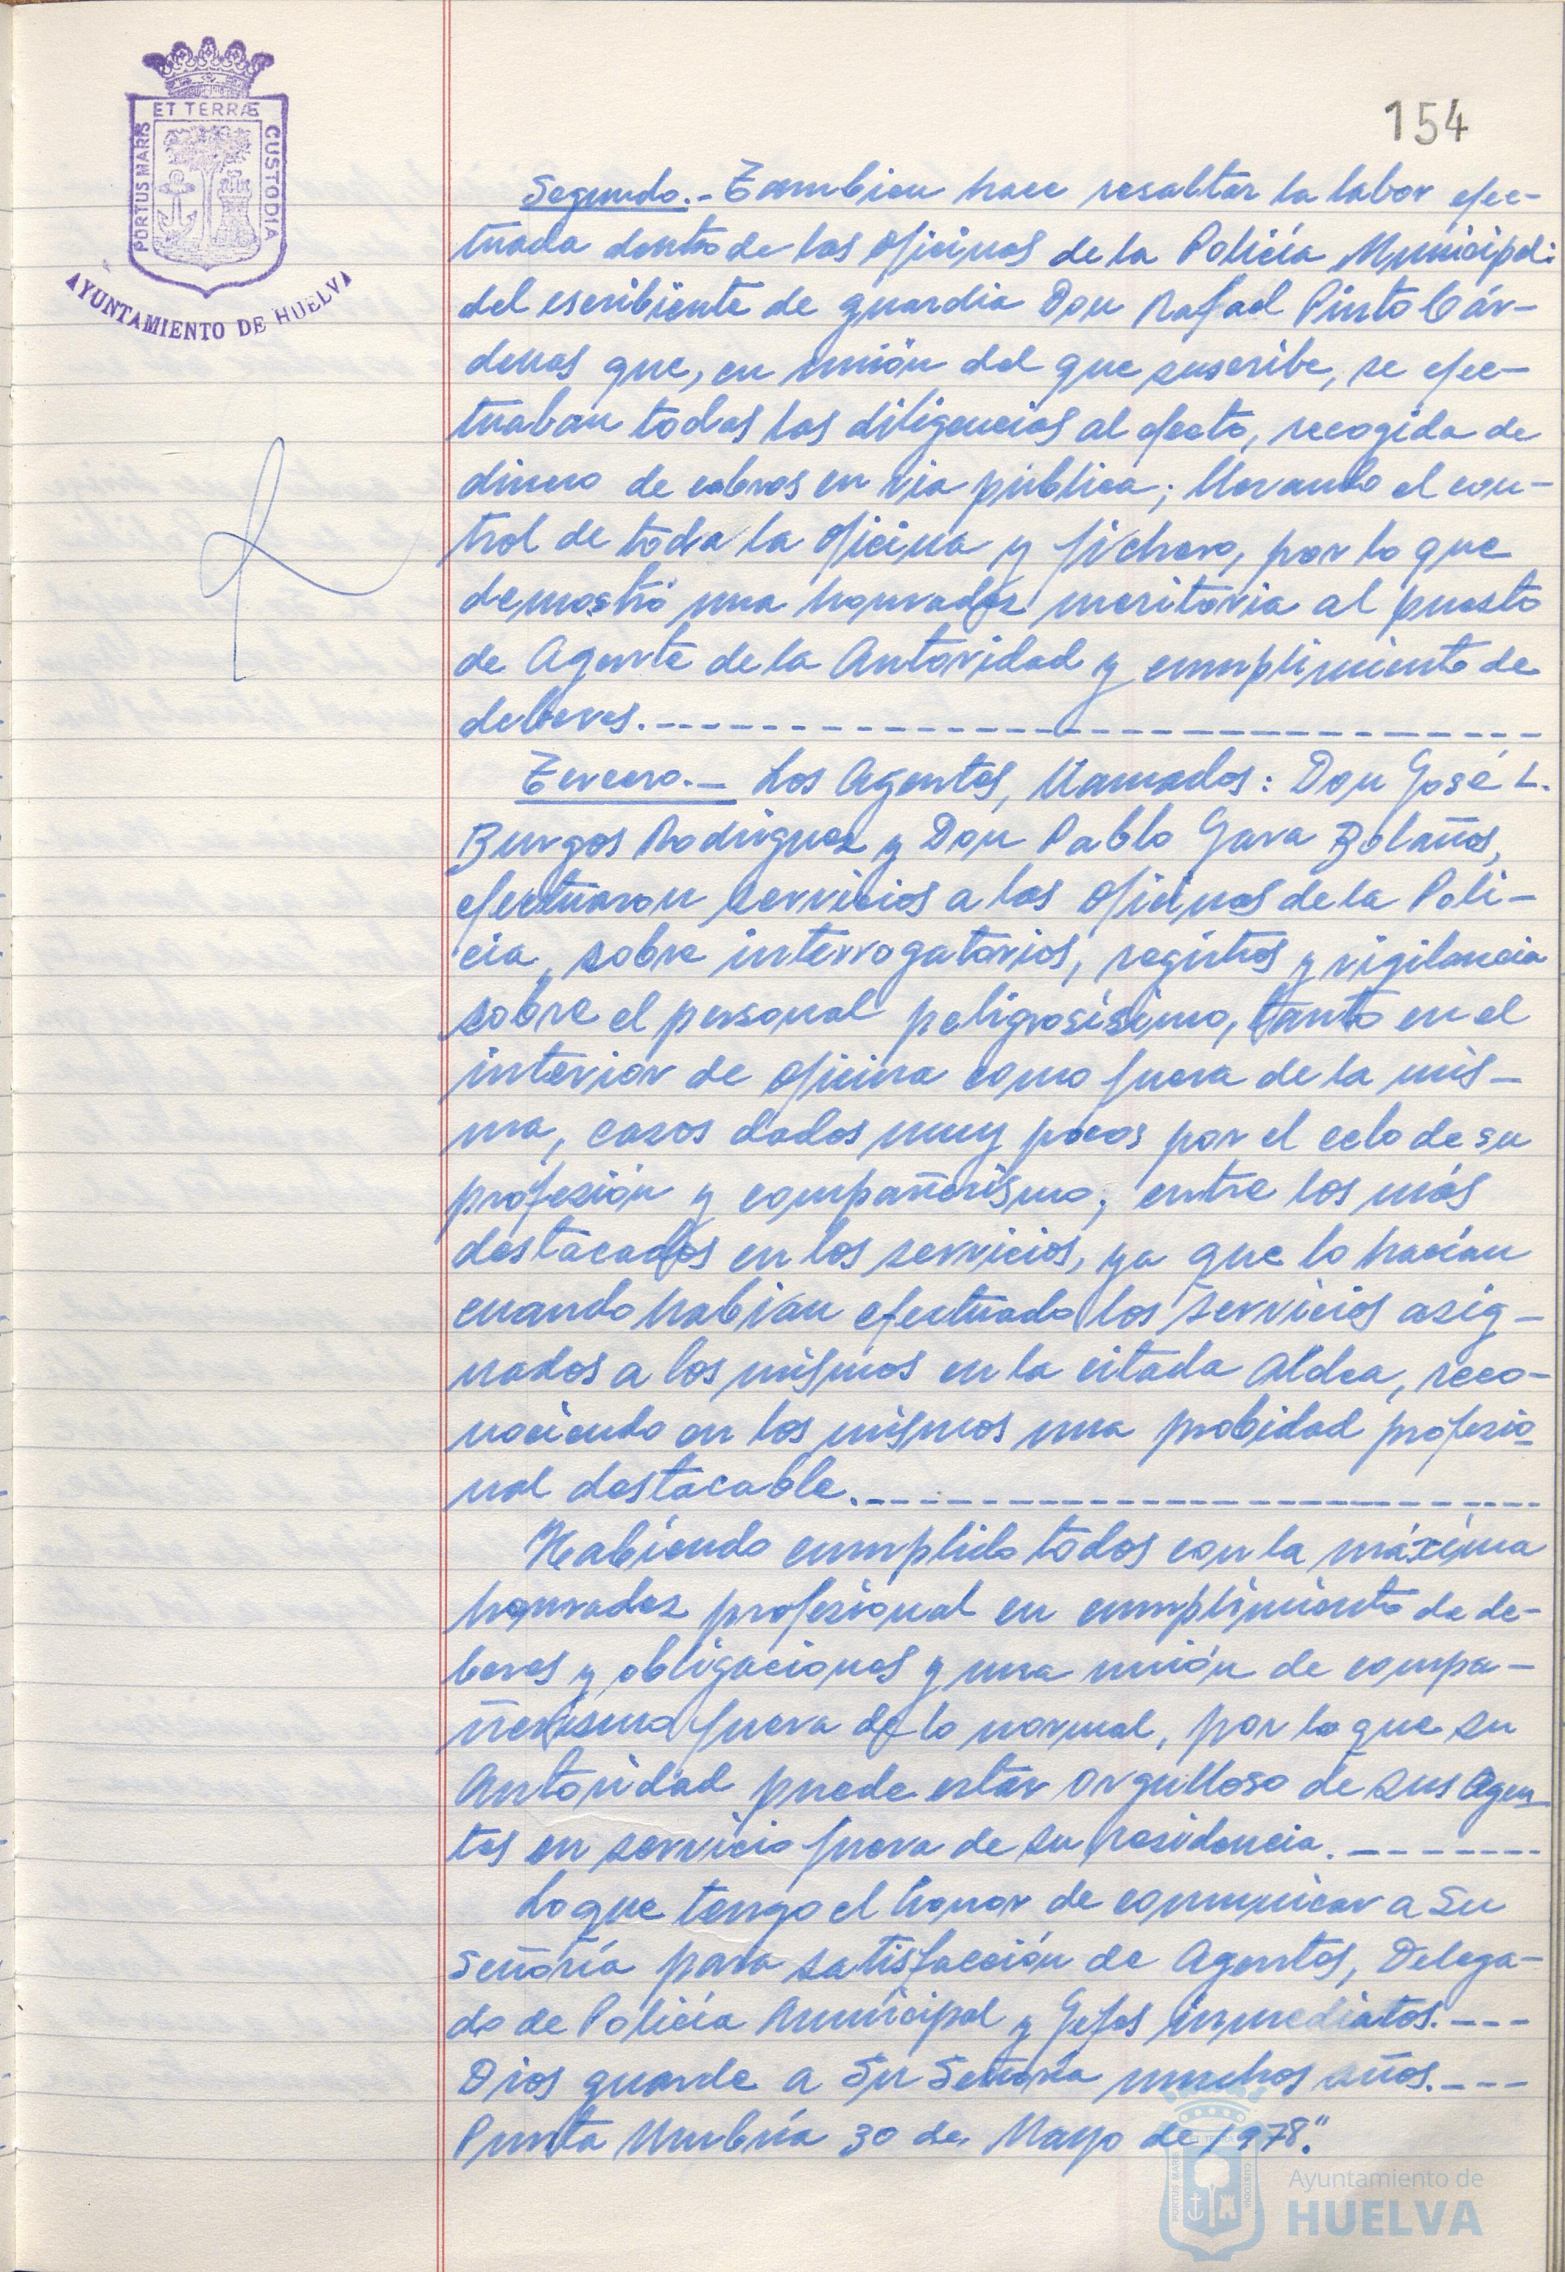 ET TERRÆ
PORTUS MARIS
CUSTODIA
AYUNTAMIENTO DE HUELVA
154
Segundo.- Tambien hace resaltar la labor efec-
tuada dentro de las oficinas de la Policía Municipal:
del escribiente de guardia Don Rafael Pinto Cár-
denas que, en unión del que suscribe, se efec-
tuaban todas las diligencias al efecto, recogida de
dinero de cobros en via pública; llevando el con-
trol de toda la oficina y fichero, por lo que
demostró una honradez meritoria al puesto
de Agente de la Autoridad y cumplimiento de
deberes.
Tercero.- Los Agentes, llamados: Don José L.
Burgos Rodriguez y Don Pablo Gara Bolaños,
efectuaron servicios a las oficinas de la Poli-
cia, sobre interrogatorios, registros y vigilancia
sobre el personal peligrosísimo, tanto en el
interior de oficina como fuera de la mis-
ma, casos dados muy pocos por el celo de su
profesión y compañerismo; entre los más
destacados en los servicios, ya que lo hacían
cuando habian efectuado los servicios asig-
nados a los mismos en la citada Aldea, reco-
nociendo en los mismos una probidad profesio-
nal destacable.
Habiendo cumplido todos con la máxima
honradez profesional en cumplimiento de de-
beres y obligaciones y una unión de compa-
ñerismo fuera de lo normal, por lo que su
Autoridad puede estar orgulloso de sus Agen-
tes en servicio fuera de su residencia.
Lo que tengo el honor de comunicar a Su
Señoría para satisfacción de Agentes, Delega-
do de Policía Municipal y Gefes inmediatos.---
Dios guarde a Su Señoría muchos años.---
Punta Umbría 30 de Mayo de 1978".
Ayuntamiento de
HUELVA